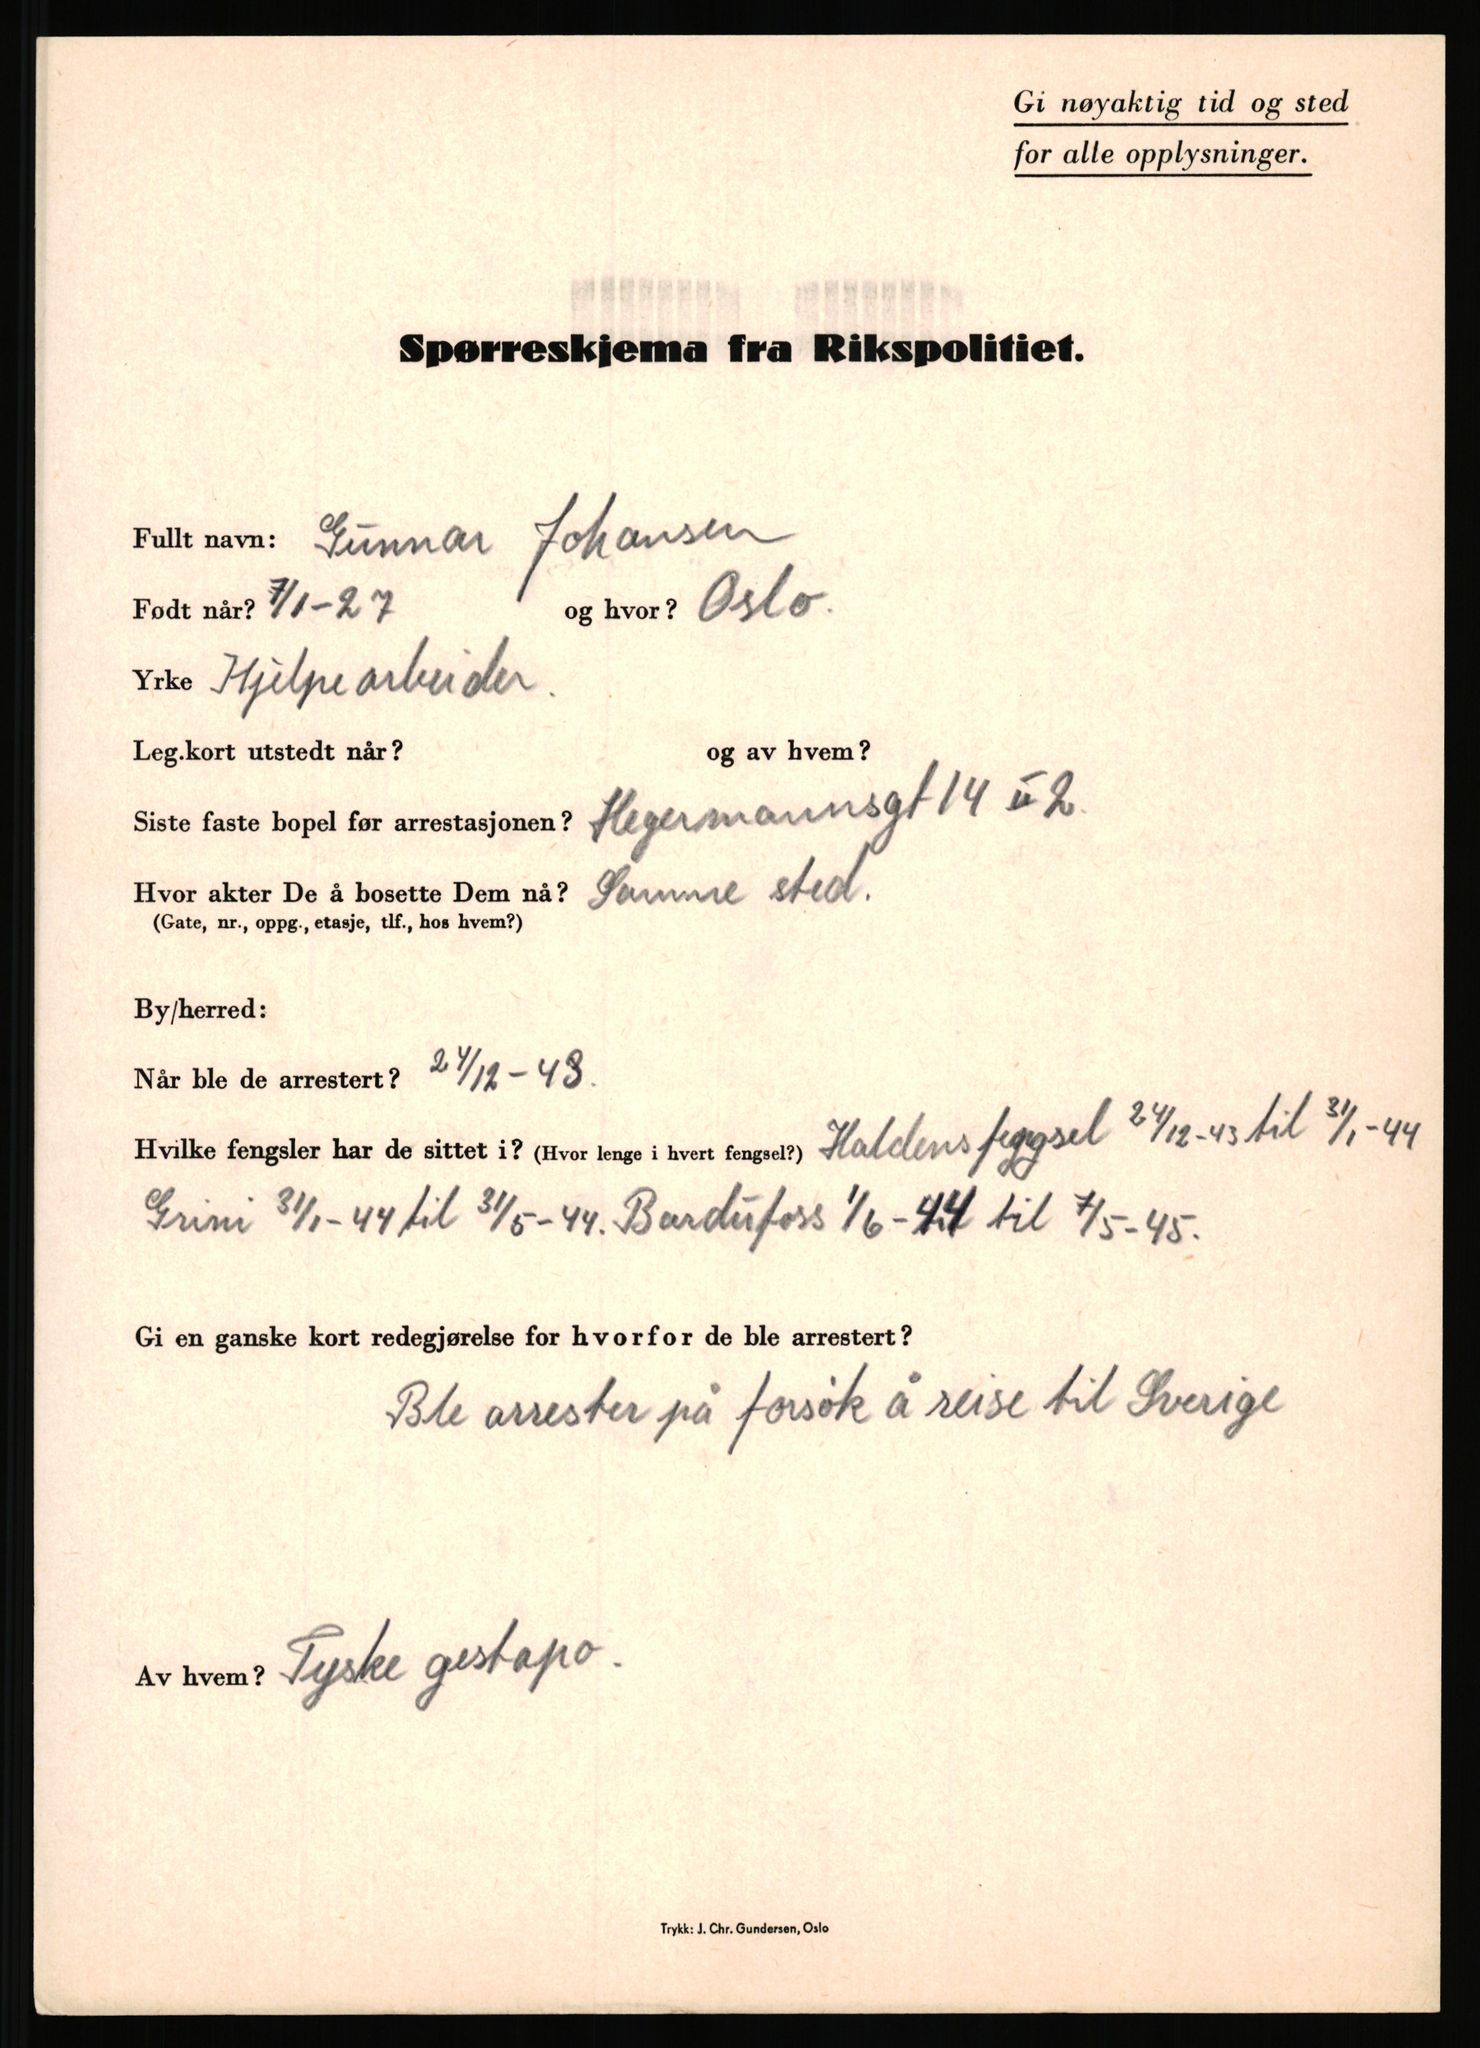 Gi nøyaktig tid og sted
for alle opplysninger.
Spørreskjema fra Rikspolitiet.
Fullt navn: Gunnar Johansen
Født når? 7/1-27 og hvor? Oslo.
Yrke Hjelpearbeider.
Leg.kort utstedt når? og av hvem?
Siste faste bopel før arrestasjonen? Hegermannsgt 14 II 2.
Hvor akter De å bosette Dem nå? Samme sted.
(Gate, nr., oppg., etasje, tlf., hos hvem?)
By/herred:
Når ble de arrestert? 24/12-43.
Hvilke fengsler har de sittet i? (Hvor lenge i hvert fengsel?) Haldens fengsel 24/12-43 til 31/1-44
Grini 31/1-44 til 31/5-44. Bardufoss 1/6-44 til 7/5-45.
Gi en ganske kort redegjørelse for hvorfor de ble arrestert?
Ble arrester på forsøk å reise til Sverige
Av hvem? Tyske gestapo.
Trykk: J. Chr. Gundersen, Oslo